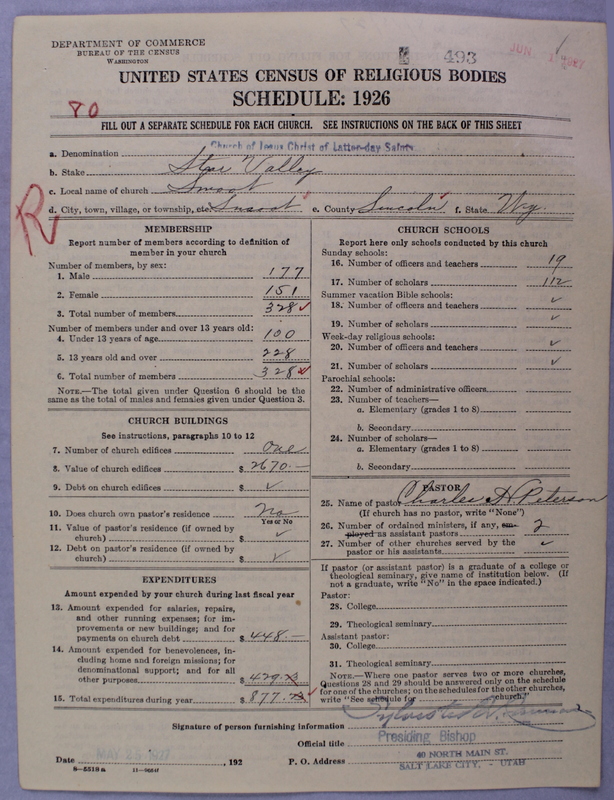 DEPARTMENT OF COMMERCE
BUREAU OF THE CENSUS
WASHINGTON
493
JUN 1
UNITED STATES CENSUS OF RELIGIOUS BODIES
SCHEDULE: 1926
80
FILL OUT A SEPARATE SCHEDULE FOR EACH CHURCH. SEE INSTRUCTIONS ON THE BACK OF THIS SHEET
a. Denomination Church of Jesus Christ of Latter-day Saints
b. Stake Star Valley
c. Local name of church Smoot
d. City, town, village, or township, etc. Smoot e. County Lincoln f. State Wy.
R
MEMBERSHIP
Report number of members according to definition of
member in your church
Number of members, by sex:
1. Male 177
2. Female 151
3. Total number of members 328 ✓
Number of members under and over 13 years old:
4. Under 13 years of age 100
5. 13 years old and over 228
6. Total number of members 328 ✓
NOTE.—The total given under Question 6 should be the
same as the total of males and females given under Question 3.
CHURCH BUILDINGS
See instructions, paragraphs 10 to 12
7. Number of church edifices One
8. Value of church edifices $ 2670.—
9. Debt on church edifices $ ✓
10. Does church own pastor's residence? No
Yes or No
11. Value of pastor's residence (if owned by
church) $ ✓
12. Debt on pastor's residence (if owned by
church) $ ✓
EXPENDITURES
Amount expended by your church during last fiscal year
13. Amount expended for salaries, repairs,
and other running expenses; for im-
provements or new buildings; and for
payments on church debt $ 448.—
14. Amount expended for benevolences, in-
cluding home and foreign missions; for
denominational support; and for all
other purposes $ 429.
15. Total expenditures during year $ 877. ✓
CHURCH SCHOOLS
Report here only schools conducted by this church
Sunday schools:
16. Number of officers and teachers 19
17. Number of scholars 112
Summer vacation Bible schools:
18. Number of officers and teachers ✓
19. Number of scholars ✓
Week-day religious schools:
20. Number of officers and teachers ✓
21. Number of scholars ✓
Parochial schools:
22. Number of administrative officers
23. Number of teachers—
a. Elementary (grades 1 to 8)
b. Secondary
24. Number of scholars—
a. Elementary (grades 1 to 8)
b. Secondary
PASTOR
25. Name of pastor Charles H Peterson
(If church has no pastor, write "None")
26. Number of ordained ministers, if any, em-
ployed as assistant pastors 2
27. Number of other churches served by the
pastor or his assistants ✓
If pastor (or assistant pastor) is a graduate of a college or
theological seminary, give name of institution below. (If
not a graduate, write "No" in the space indicated.)
Pastor:
28. College
29. Theological seminary
Assistant pastor:
30. College
31. Theological seminary
NOTE.—Where one pastor serves two or more churches,
Questions 28 and 29 should be answered only on the schedule
for one of the churches; on the schedules for the other churches,
write "See schedule for church."
Signature of person furnishing information
Official title Presiding Bishop
Date MAY 25 1927, 192 P. O. Address 40 NORTH MAIN ST.
SALT LAKE CITY, - UTAH
8—5518a 11—9654f